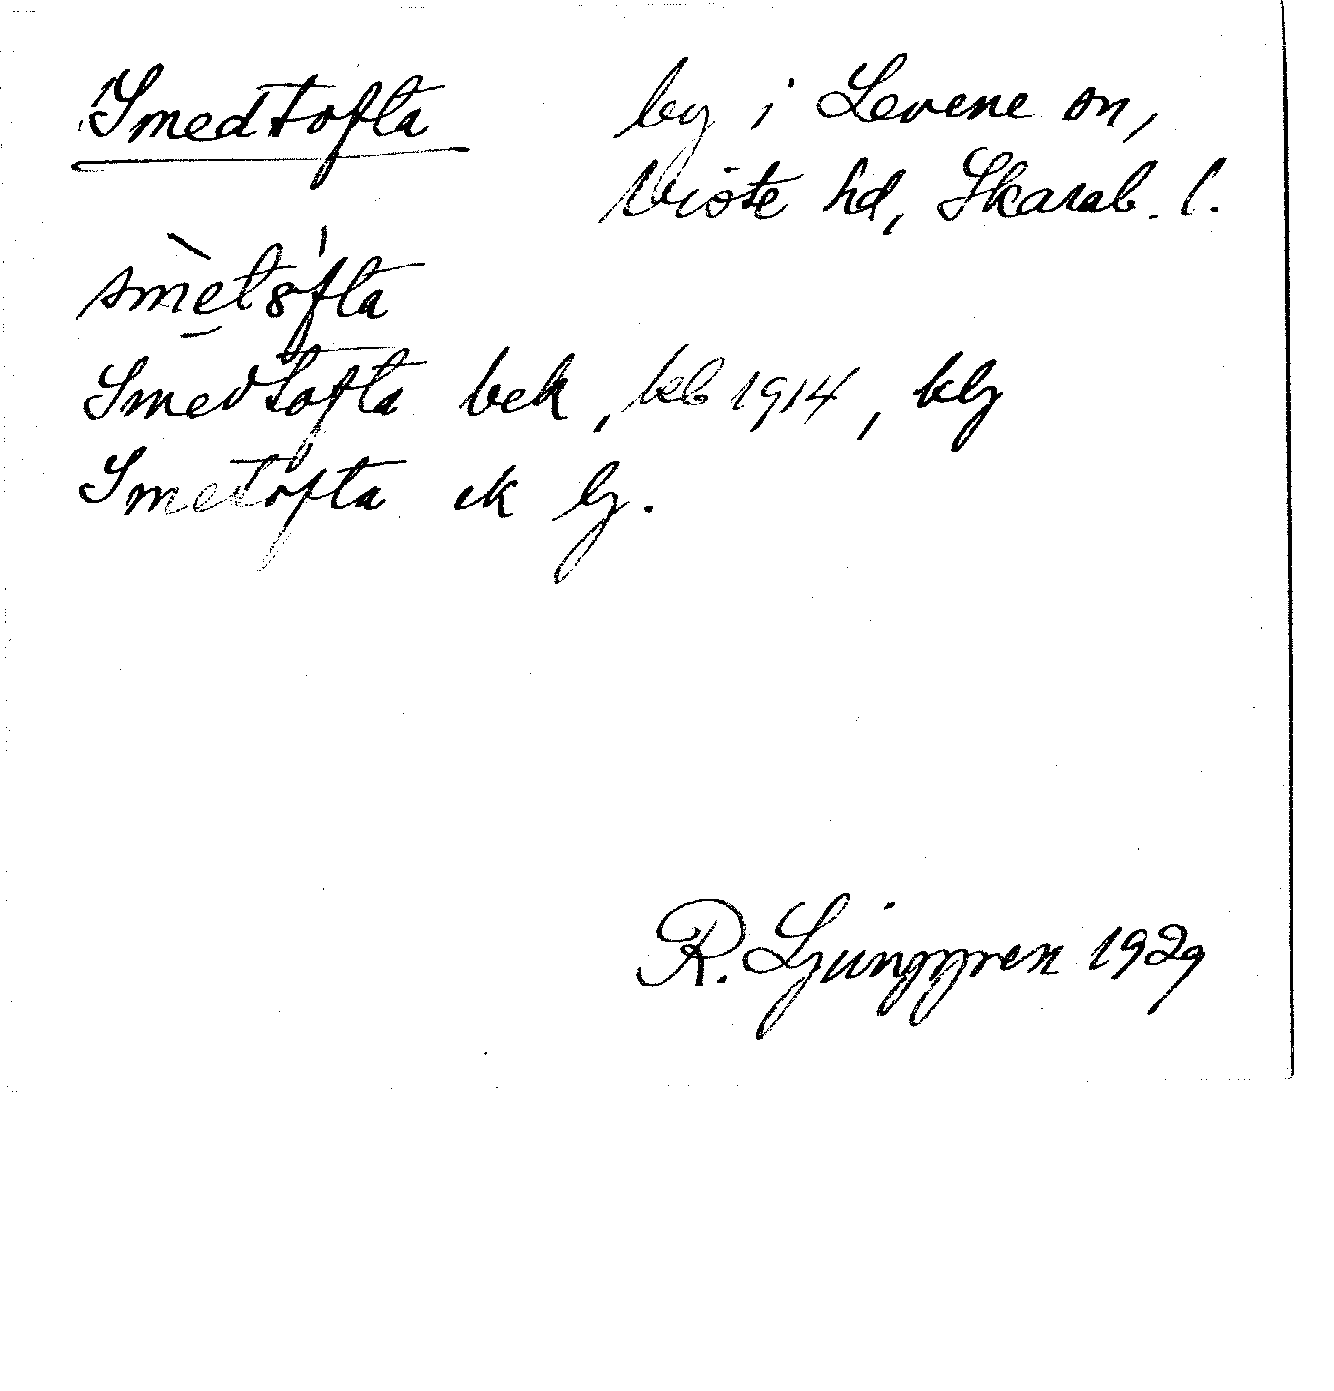 Smedtofta by i Levene sn,
Viste hd, Skarab. l.
smètȣ́fta
Smedtofta bek, kb 1914, klj
Smetofta ek lj.
R. Ljunggren 1929